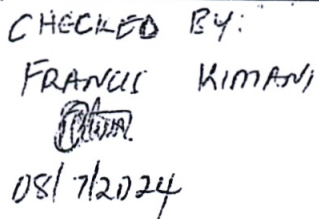 CHECKED BY:
FRANCIS KIMANI
08/7/2024